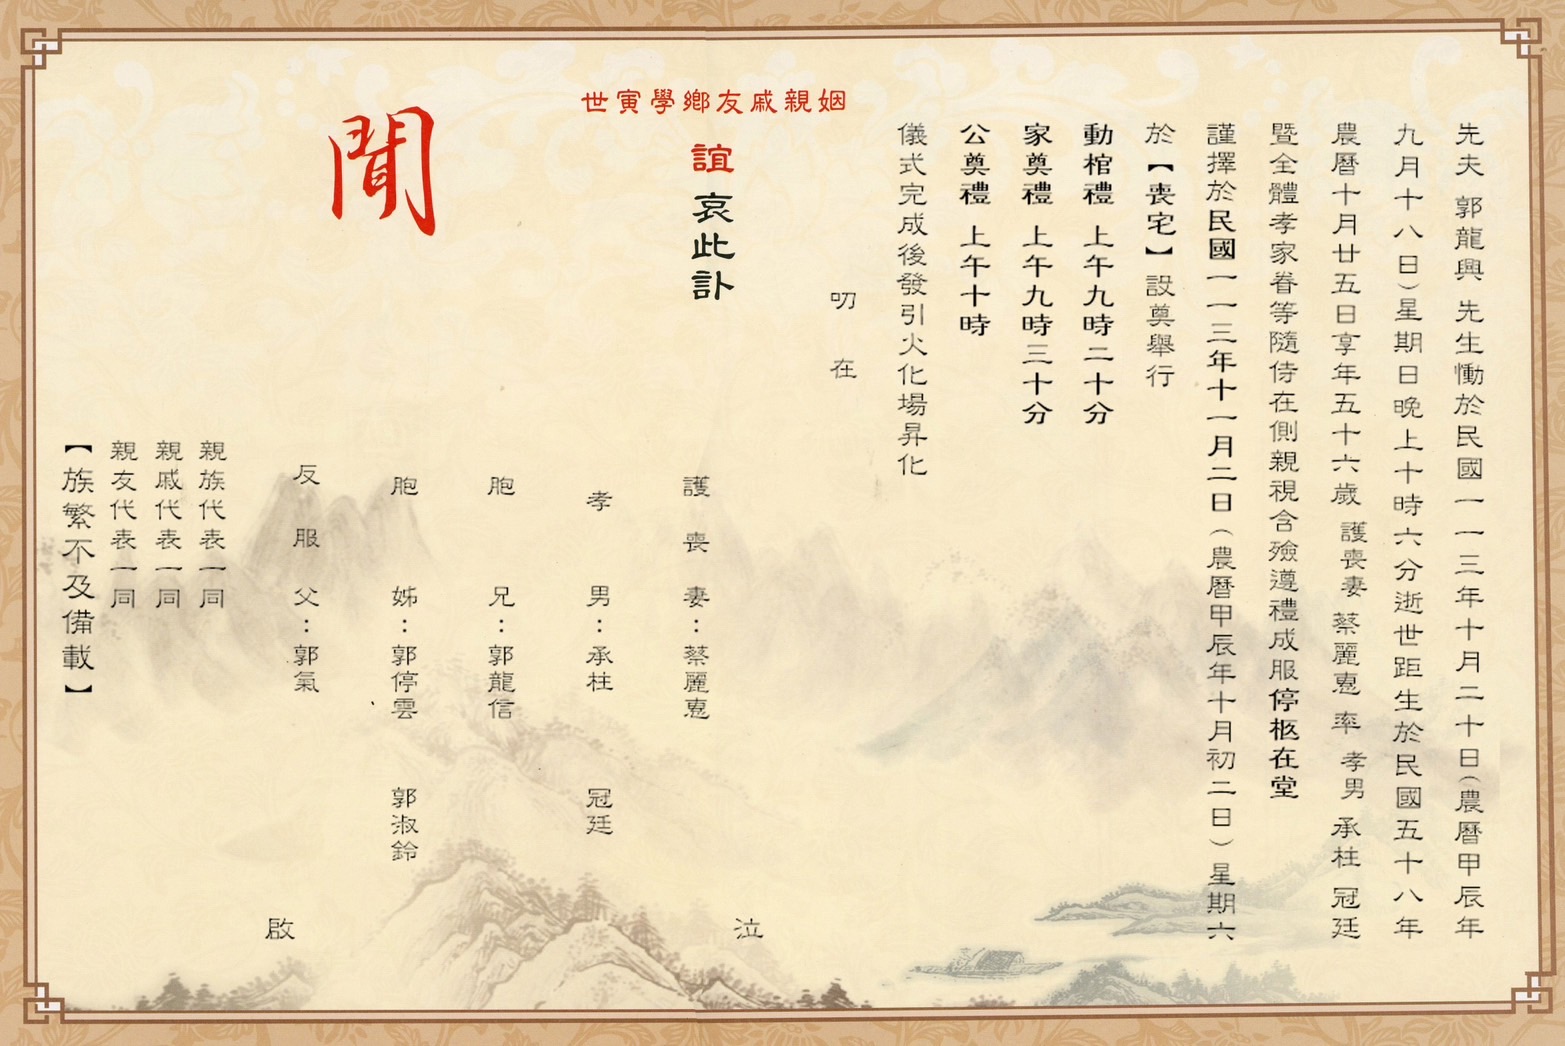 先夫 郭龍興 先生慟於民國一一三年十月二十日(農曆甲辰年
九月十八日)星期日晚上十時六分逝世距生於民國五十八年
農曆十月廿五日享年五十六歲 護喪妻 蔡麗憲 率 孝男 承柱 冠廷
暨全體孝家眷等隨侍在側親視含殮遵禮成服停柩在堂
謹擇於民國一一三年十一月二日(農曆甲辰年十月初二日)星期六
於【喪宅】設奠舉行
動棺禮 上午九時二十分
家奠禮 上午九時三十分
公奠禮 上午十時
儀式完成後發引火化場昇化
叨 在
世寅學鄉友戚親姻
誼 哀此訃
聞
泣
護喪妻:蔡麗憲
孝男:承柱 冠廷
胞兄:郭龍信
胞姊:郭停雲 郭淑鈴
反服父:郭氣
啟
親族代表一同
親戚代表一同
親友代表一同
【族繁不及備載】